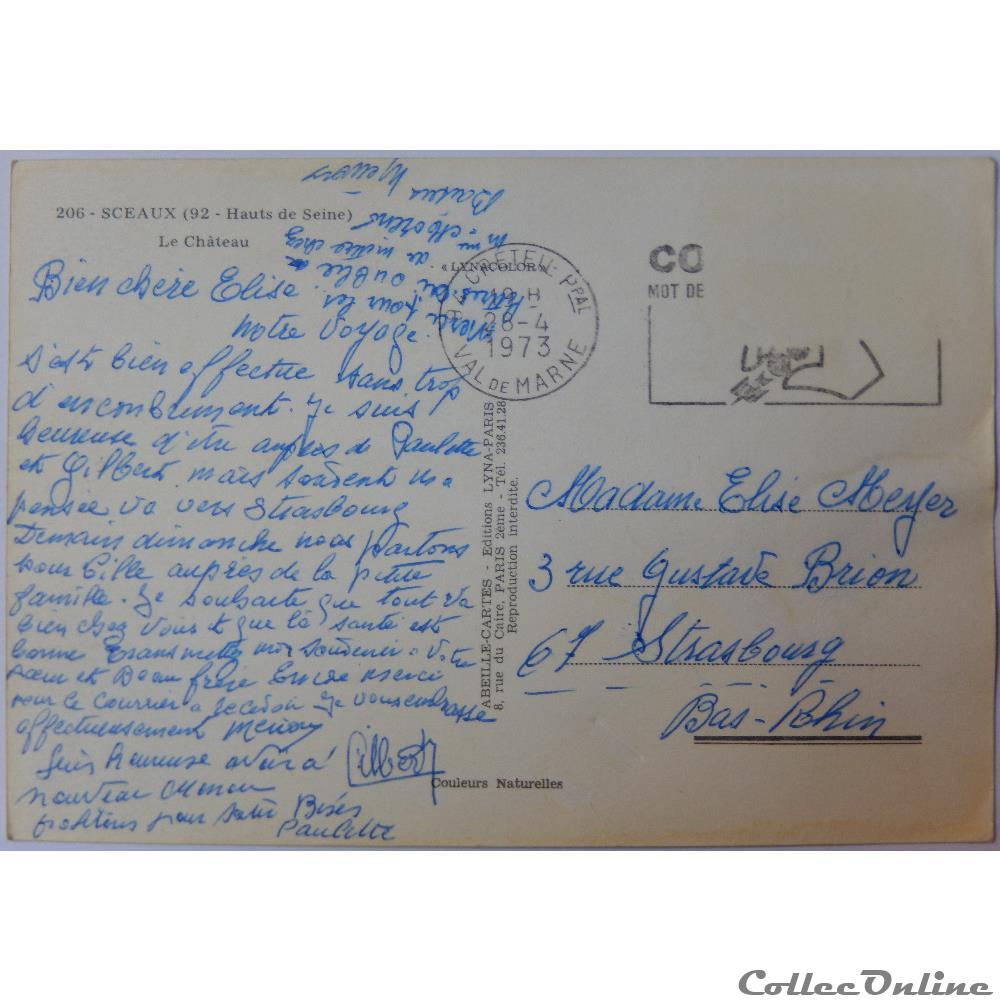 206 - SCEAUX (92 - Hauts de Seine)
Le Château
Bien chère Elise.
Notre Voyage
s'est bien effectué sans trop
d'encombrement. Je suis
heureuse d'être auprès de Paulette
et Gilbert mais souvent ma
pensée va vers Strasbourg
Demain dimanche nous partons
pour Lille auprès de la petite
famille. Je souhaite que tout va
bien chez vous et que la santé est
bonne Transmettez mon souvenir à votre
sœur et Beau frère Encore merci
pour le Courrier Je vous embrasse
affectueusement
Suis heureuse avoir à
nouveau Maman
profitons pour Bises
Paulette
Gilbert
Merci pour les
oublié
de chez
Mme
Baisers
« LYNACOLOR »
94 CRETEIL PPAL
18 H
28-4
1973
VAL DE MARNE
CO
MOT DE
ABEILLE-CARTES - Editions LYNA-PARIS
8, rue du Caire, PARIS 2ème - Tél. 236.41.28
Reproduction interdite.
Madame Elise Meyer
3 rue Gustave Brion
67 Strasbourg
Bas-Rhin
Couleurs Naturelles
CollecOnline